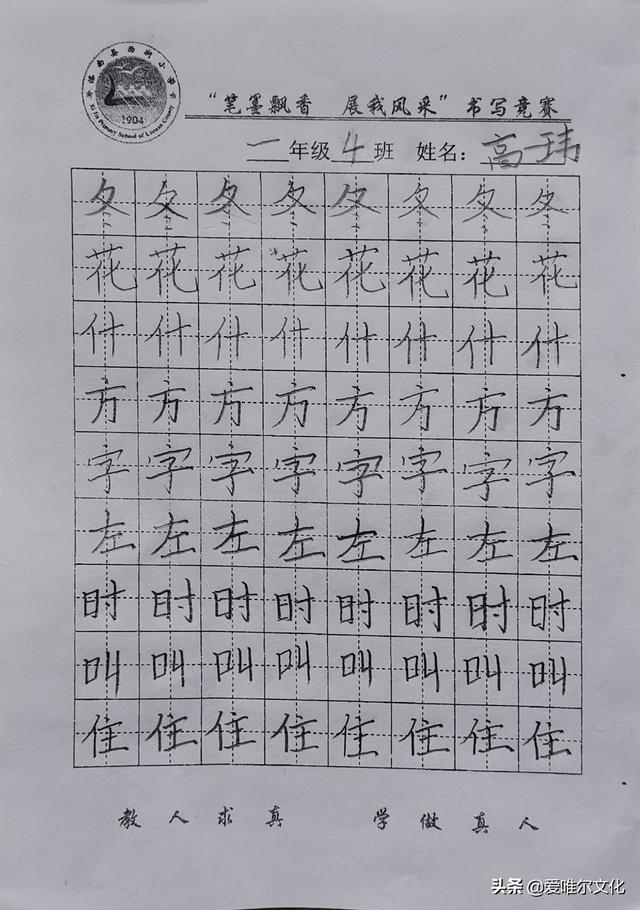 洛南县西街小学
1904
XiJie Primary School of Luonan County
“笔墨飘香 展我风采”书写竞赛
一年级4班 姓名：高一玮
冬冬冬冬冬冬冬冬
花花花花花花花花
什什什什什什什什
方方方方方方方方
字字字字字字字字
左左左左左左左左
时时时时时时时时
叫叫叫叫叫叫叫叫
住住住住住住住住
教人求真 学做真人
头条 @爱唯尔文化